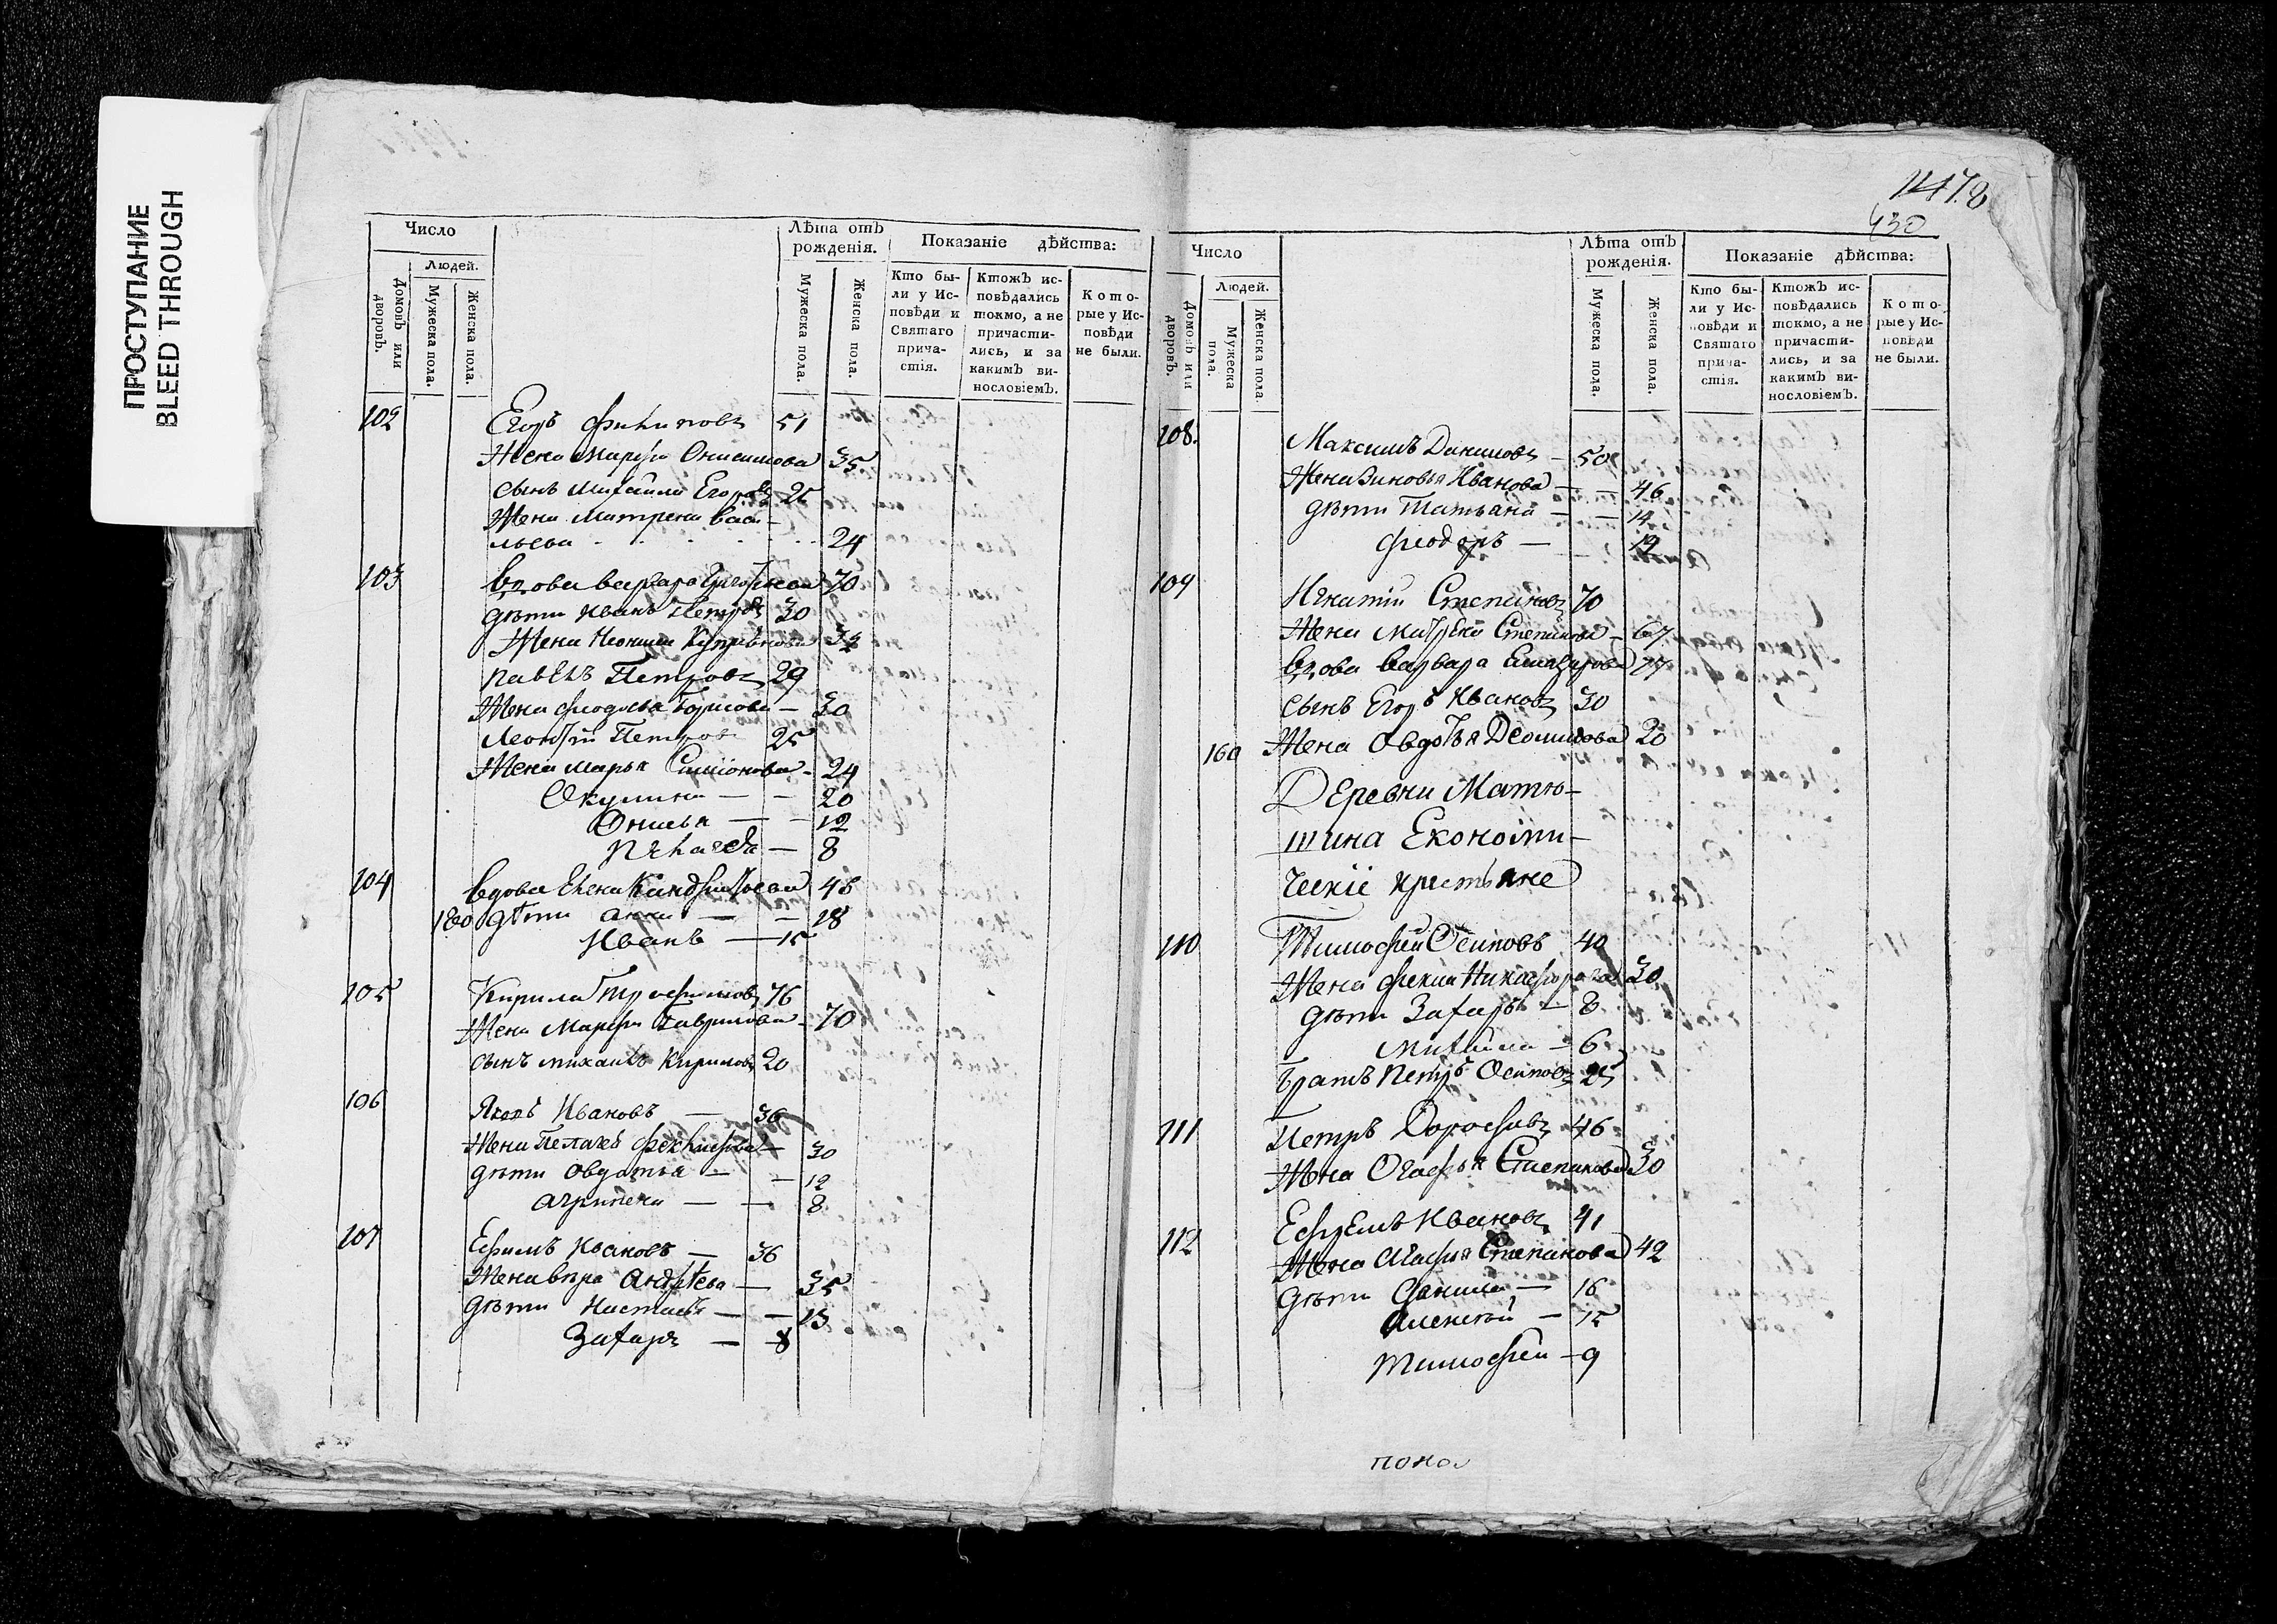 ПРОСТУПАНИЕ
BLEED THROUGH
Число
Людей.
Домовъ или дворовъ.
Мужеска пола.
Женска пола.
Лѣта отъ рожденія.
Мужеска пола.
Женска пола.
Показаніе дѣйства:
Кто бы-
ли у Ис-
повѣди и
Святаго
прича-
стія.
Ктожъ ис-
повѣдались
токмо, а не
причасти-
лись, и за
какимъ ви-
нословіемъ.
Кото-
рые у Ис-
повѣди
не были.
102 Егоръ Филиповъ 51
Жена Марфа Онисимова 35
сынъ Михаила Егоровъ 25
Жена Матрена Васи-
льева 24
103 Вдова Варвара 70
дѣти Иванъ Петровъ 30
Жена 34
Павелъ Петровъ 29
Жена Федосья Борисова 30
Леонтій Петровъ 25
Жена Марья Симіонова 24
Окулина 20
Онисья 12
Пелагея 8
104 Вдова Елена 48
180 дѣти Анна 18
Иванъ 15
105 Кирила Трофимовъ 76
Жена Марфа Гаврилова 70
сынъ Михаилъ Кириловъ 20
106 Яковъ Ивановъ 36
Жена 30
дѣти Овдотья 12
Агрипена 8
107 Ефимъ Ивановъ 36
Жена Вѣра Андрѣева 35
дѣти Настасья 13
Захаръ 8
1478
430
Число
Людей.
Домовъ или дворовъ.
Мужеска пола.
Женска пола.
Лѣта отъ рожденія.
Мужеска пола.
Женска пола.
Показаніе дѣйства:
Кто бы-
ли у Ис-
повѣди и
Святаго
прича-
стія.
Ктожъ ис-
повѣдались
токмо, а не
причасти-
лись, и за
какимъ ви-
нословіемъ.
Кото-
рые у Ис-
повѣди
не были.
108. Максимъ Даниловъ 50
Жена Зиновья Иванова 46
дѣти Татьяна 14
Феодоръ 12
109 Игнатіи Степановъ 70
Жена Матрена Степанова 67
Вдова Варвара 77
сынъ Егоръ Ивановъ 30
160 Жена Овдотья 20
Деревни Матю-
шина Економи-
ческіе крестьяне
110 Тимофей Осиповъ 40
Жена Фекла Никифорова 30
дѣти Захаръ 8
Михаила 6
Братъ Петръ Осиповъ 25
111 Петръ Дорофѣевъ 46
Жена Огафья Степанова 30
112 Ефремъ Ивановъ 41
Жена Агафья Степанова 42
дѣти Данила 16
Алексѣй 15
Тимофеи 9